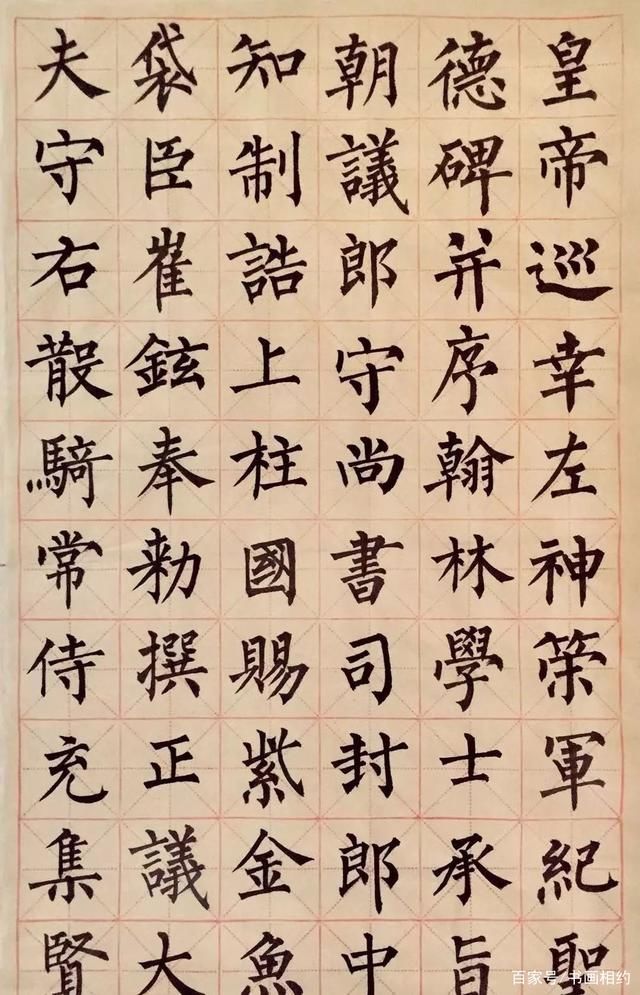 皇帝巡幸左神策軍紀聖
德碑并序翰林學士承旨
朝議郎守尚書司封郎中
知制誥上柱國賜紫金魚
袋臣崔鉉奉勑撰正議大
夫守右散騎常侍充集賢
百家号/书画相约